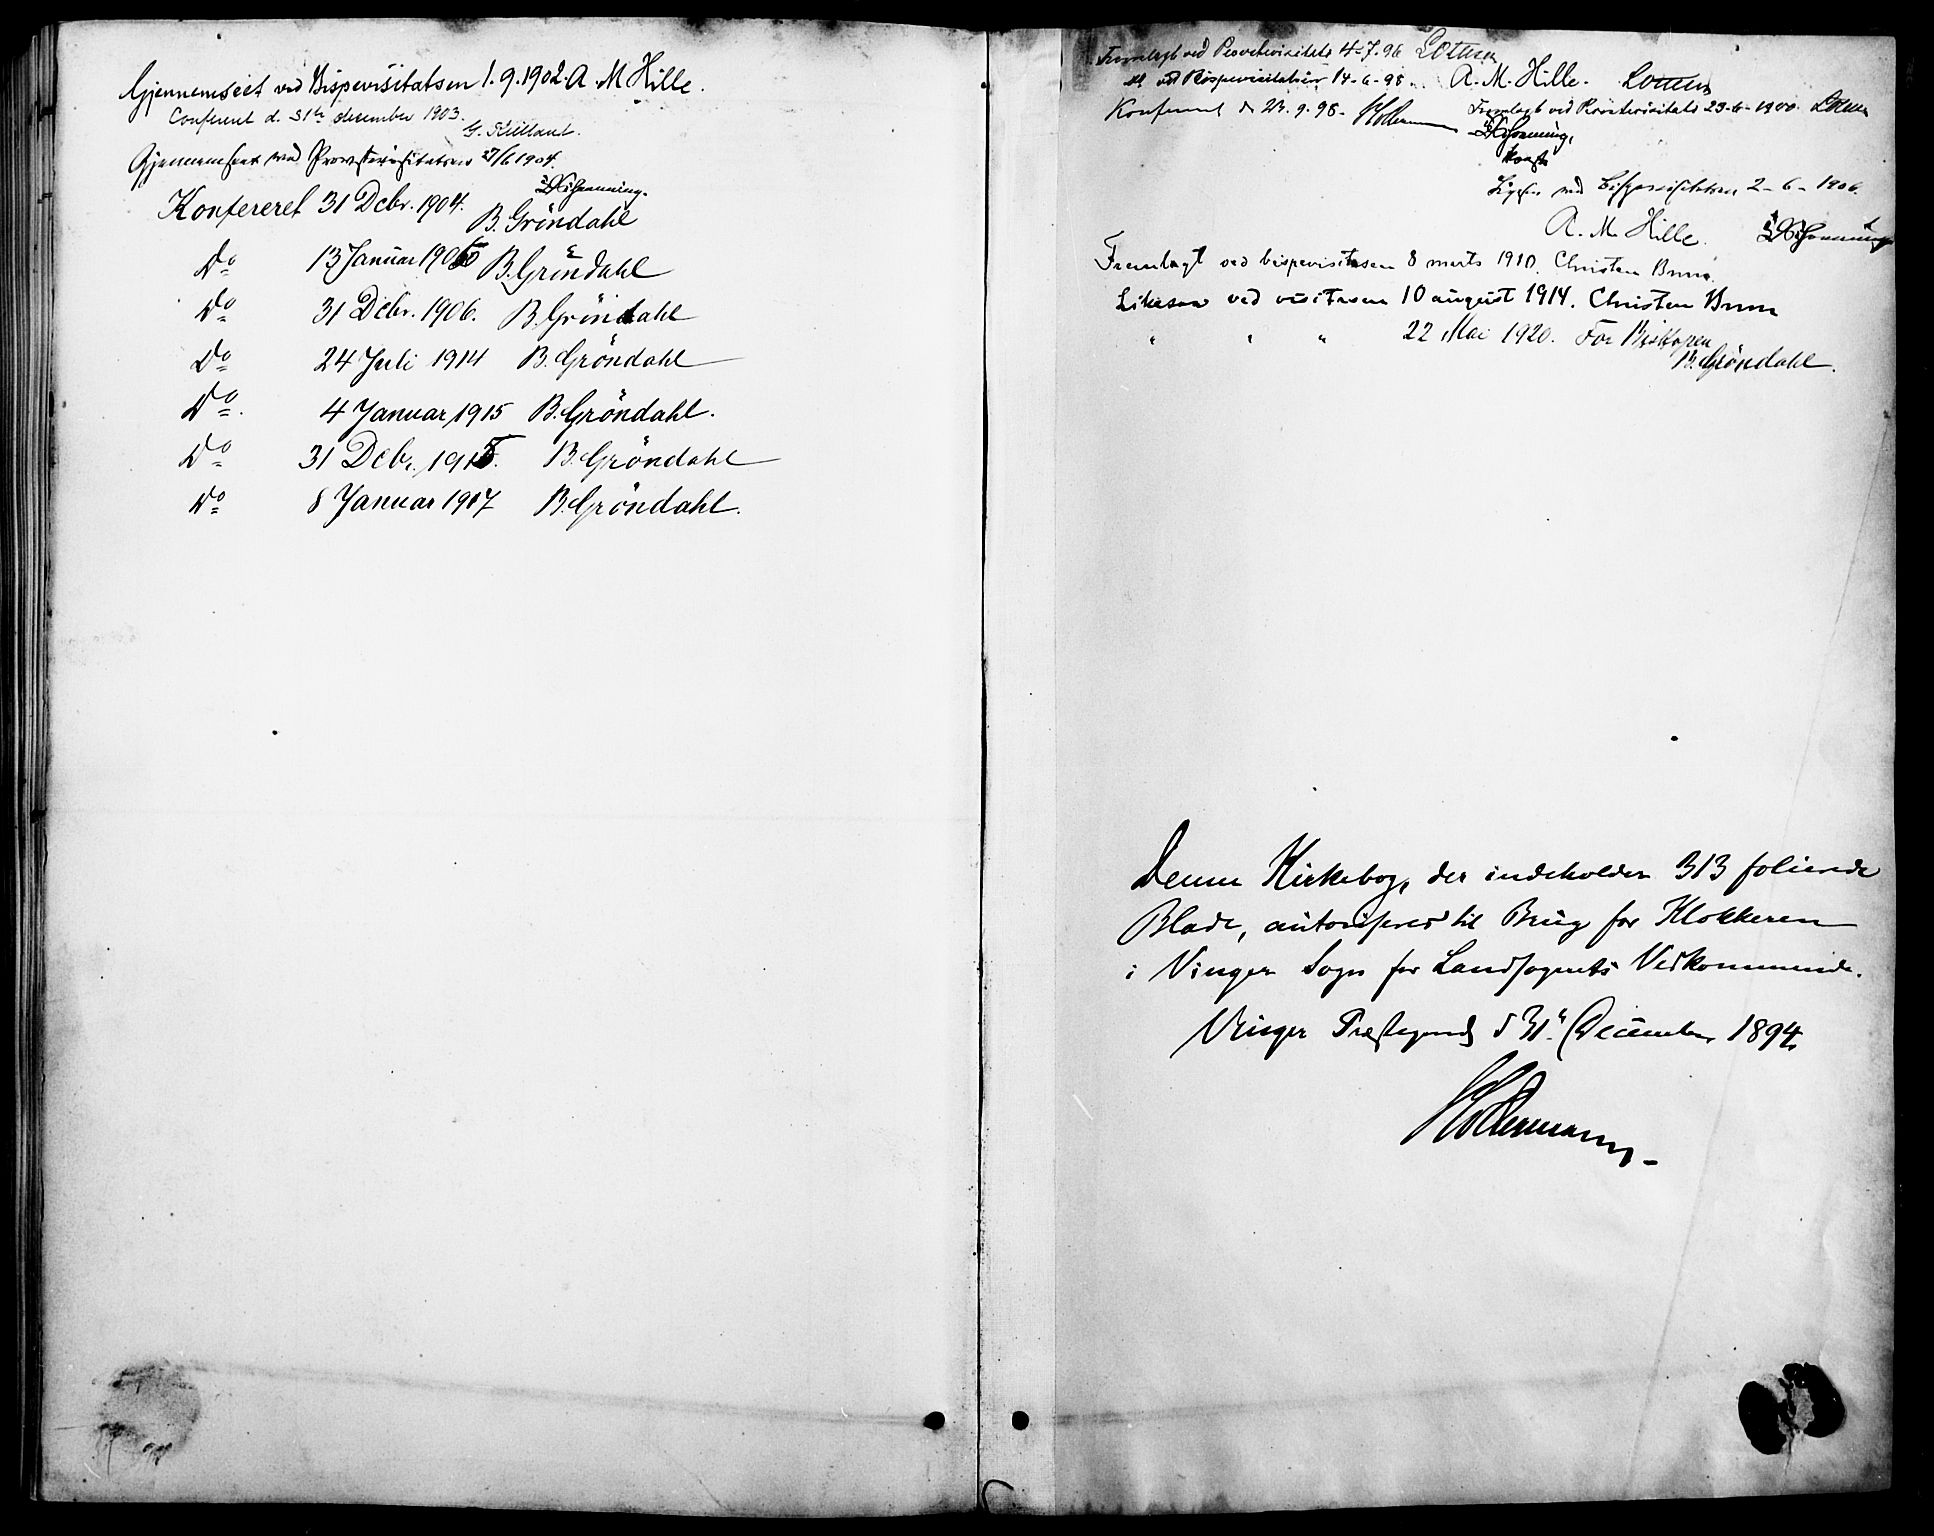 Gjennemseet ved Bispevisitatsen 1.9.1902. A. M Hille.
Confereret d. 31te december 1903.
G. Kielland.
Gjennemseet ved Provstevisitatsen 27/6 1904.
Konfereret 31 Decbr. 1904. B. Gröndahl
Do 13 Januar 1906 B. Gröndahl
Do 31 Decbr. 1906. B. Gröndahl
Do 24 Juli 1914 B. Gröndahl
Do. 4 Januar 1915 B. Gröndahl.
Do 31 Decbr. 1915. B. Gröndahl
Do 8 Januar 1917 B. Gröndahl.
Fremlagt ved Provstevisitats 4-7.96
ved Bispevisitatsen 14-6-98. A. M. Hille.
Konfereret d 23.9.98. Fremlagt ved Provstevisitats 23-6-1900.
konst
Ligesaa ved Bispevisitatsen 2-6-1906.
A. M. Hille.
Fremlagt ved bispevisitasen 8 marts 1910. Christen Brun.
Likesaa ved visitasen 10 august 1914. Christen Brun
" " " 22 Mai 1920. For Biskopen
B. Gröndahl.
Denne Kirkebog, der indeholder 313 folierede
Blade, autoriseres til Brug for Klokkeren
i Vinger Sogn for Landsognets Vedkommende.
Vinger Præstegaard d 31. December 1894.